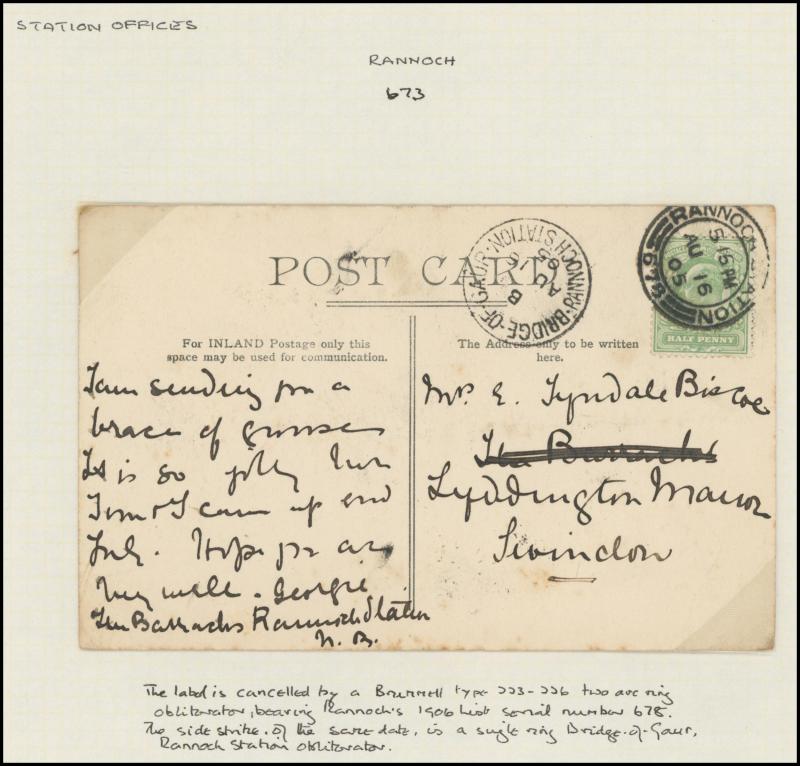 STATION OFFICES
RANNOCH
673
POST CARD
BRIDGE-OF-GAUR·RANNOCH STATION·
B
AU 16
05
RANNOCH STATION
5.15 PM
AU 16
05
678
HALF PENNY
For INLAND Postage only this
space may be used for communication.
The Address only to be written
here.
I am sending you a
brace of grouse
It is so jolly here
Tom & I came up end
July. Hope you are
very well - Georgie
The Barracks Rannoch Station
N.B.
Mrs E. Tyndale Biscoe
The Barracks
Lyddington Manor
Swindon
The label is cancelled by a Brummell type 223-226 two arc ring
obliterator, bearing Rannoch's 1906 list serial number 678.
The side strike, of the same date, is a single ring Bridge-of-Gaur,
Rannoch Station obliterator.